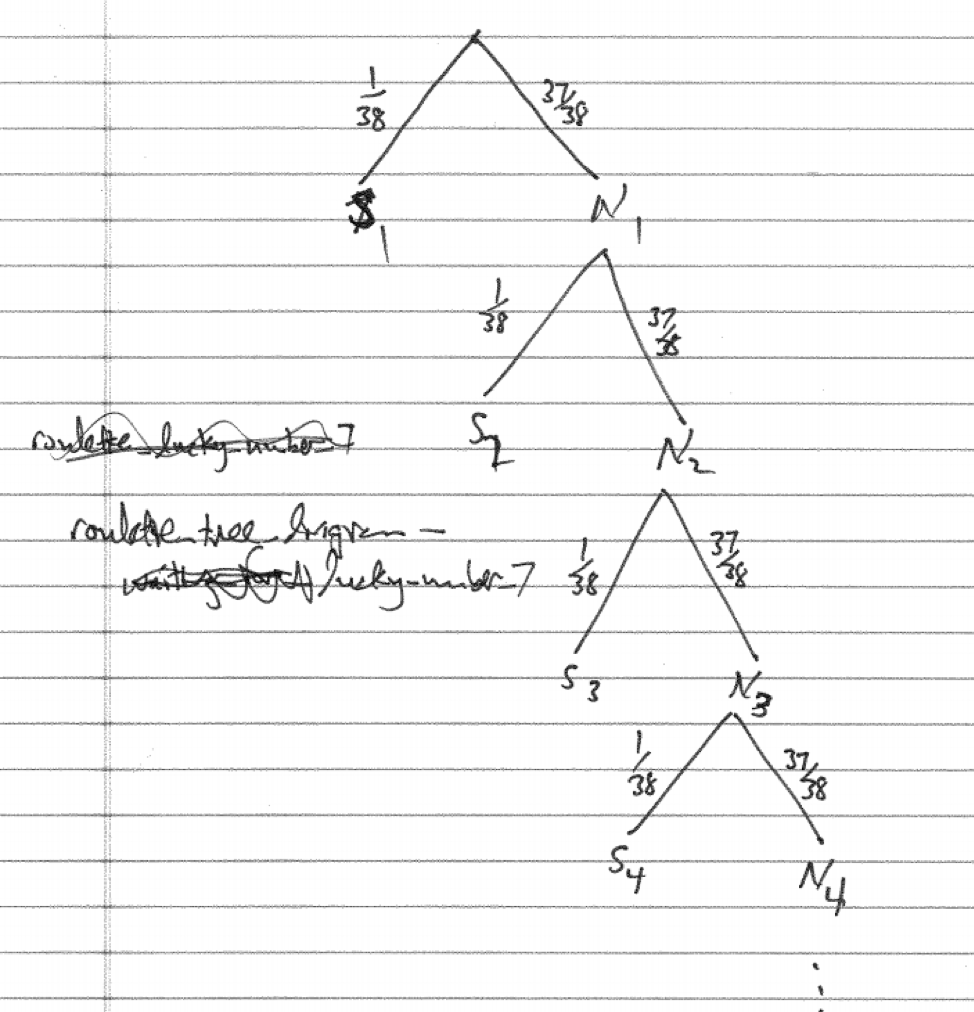 1/38 37/38
S1 N1
1/38 37/38
S2 N2
roulette_lucky_number_7
roulette_tree_diagram_
lucky_number_7
1/38 37/38
S3 N3
1/38 37/38
S4 N4